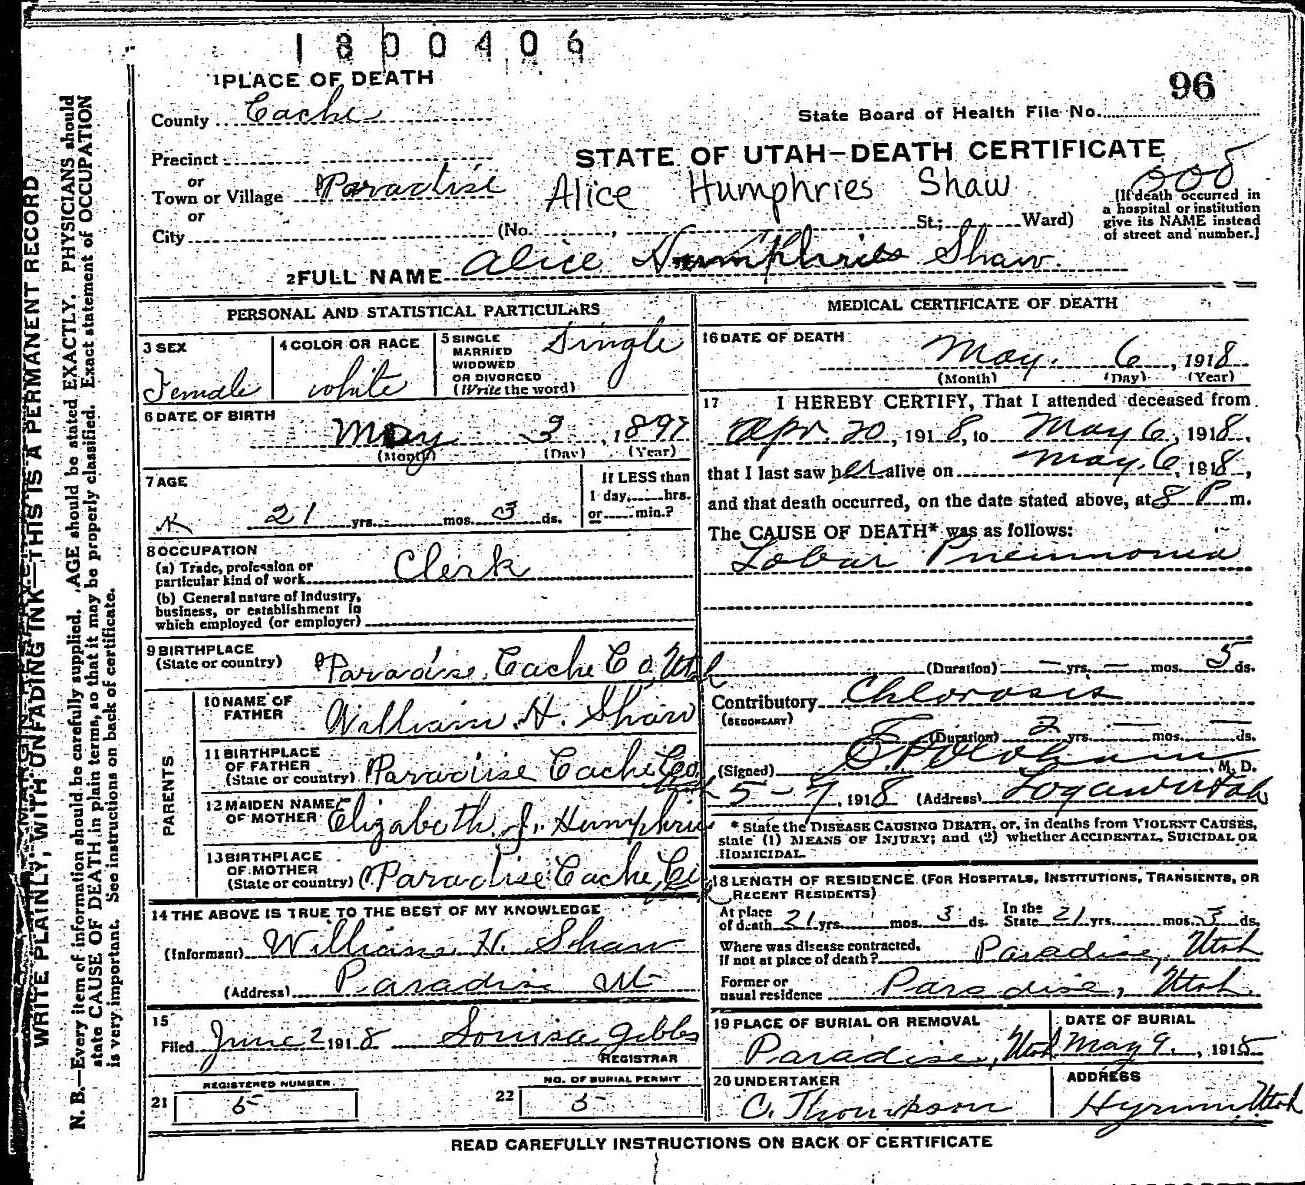 1800406
96
1 PLACE OF DEATH
County Cache
State Board of Health File No.
Precinct
STATE OF UTAH—DEATH CERTIFICATE
or
Town or Village Paradise
Alice Humphries Shaw
(If death occurred in
a hospital or institution
give its NAME instead
of street and number.]
or
City (No. , St; Ward)
2 FULL NAME Alice Humphries Shaw.
PERSONAL AND STATISTICAL PARTICULARS
3 SEX
Female
4 COLOR OR RACE
white
5 SINGLE
MARRIED
WIDOWED
OR DIVORCED
(Write the word)
Single
6 DATE OF BIRTH
May 3, 1897
(Month) (Day) (Year)
7 AGE
21 yrs. mos. 3 ds.
If LESS than
1 day, hrs.
or min.?
8 OCCUPATION
(a) Trade, profession or
particular kind of work Clerk
(b) General nature of Industry,
business, or establishment in
which employed (or employer)
9 BIRTHPLACE
(State or country) Paradise, Cache Co, Utah
PARENTS
10 NAME OF
FATHER William H. Shaw
11 BIRTHPLACE
OF FATHER
(State or country) Paradise Cache Co.
12 MAIDEN NAME
OF MOTHER Elizabeth J. Humphries
13 BIRTHPLACE
OF MOTHER
(State or country) Paradise Cache, Co
14 THE ABOVE IS TRUE TO THE BEST OF MY KNOWLEDGE
(Informant) William H. Shaw
(Address) Paradise Ut
15
Filed June 2 1918 Louisa Gibbs
REGISTRAR
REGISTERED NUMBER
21 5
NO. OF BURIAL PERMIT
22 5
MEDICAL CERTIFICATE OF DEATH
16 DATE OF DEATH
May. 6, 1918
(Month) (Day) (Year)
17 I HEREBY CERTIFY, That I attended deceased from
Apr. 20, 1918, to May 6, 1918,
that I last saw her alive on May. 6, 1918,
and that death occurred, on the date stated above, at 8 P m.
The CAUSE OF DEATH* was as follows:
Lobar Pneumonia
(Duration) — yrs. — mos. 5 ds.
Contributory Chlorosis
(SECONDARY)
(Duration) 2 yrs. — mos. — ds.
(Signed) , M. D.
5-7, 1918 (Address) Logan Utah
* State the DISEASE CAUSING DEATH, or, in deaths from VIOLENT CAUSES,
state (1) MEANS OF INJURY; and (2) whether ACCIDENTAL, SUICIDAL OR
HOMICIDAL.
18 LENGTH OF RESIDENCE (FOR HOSPITALS, INSTITUTIONS, TRANSIENTS, OR
RECENT RESIDENTS)
At place
of death 21 yrs. mos. 3 ds. In the
State 21 yrs. mos. 3 ds.
Where was disease contracted,
if not at place of death? Paradise, Utah
Former or
usual residence Paradise, Utah.
19 PLACE OF BURIAL OR REMOVAL
Paradise, Utah
DATE OF BURIAL
May 9, 1918
20 UNDERTAKER
C. Thompson
ADDRESS
Hyrum Utah
READ CAREFULLY INSTRUCTIONS ON BACK OF CERTIFICATE
WRITE PLAINLY, WITH UNFADING INK—THIS IS A PERMANENT RECORD
N. B.—Every item of information should be carefully supplied. AGE should be stated EXACTLY. PHYSICIANS should
state CAUSE OF DEATH in plain terms, so that it may be properly classified. Exact statement of OCCUPATION
is very important. See instructions on back of certificate.